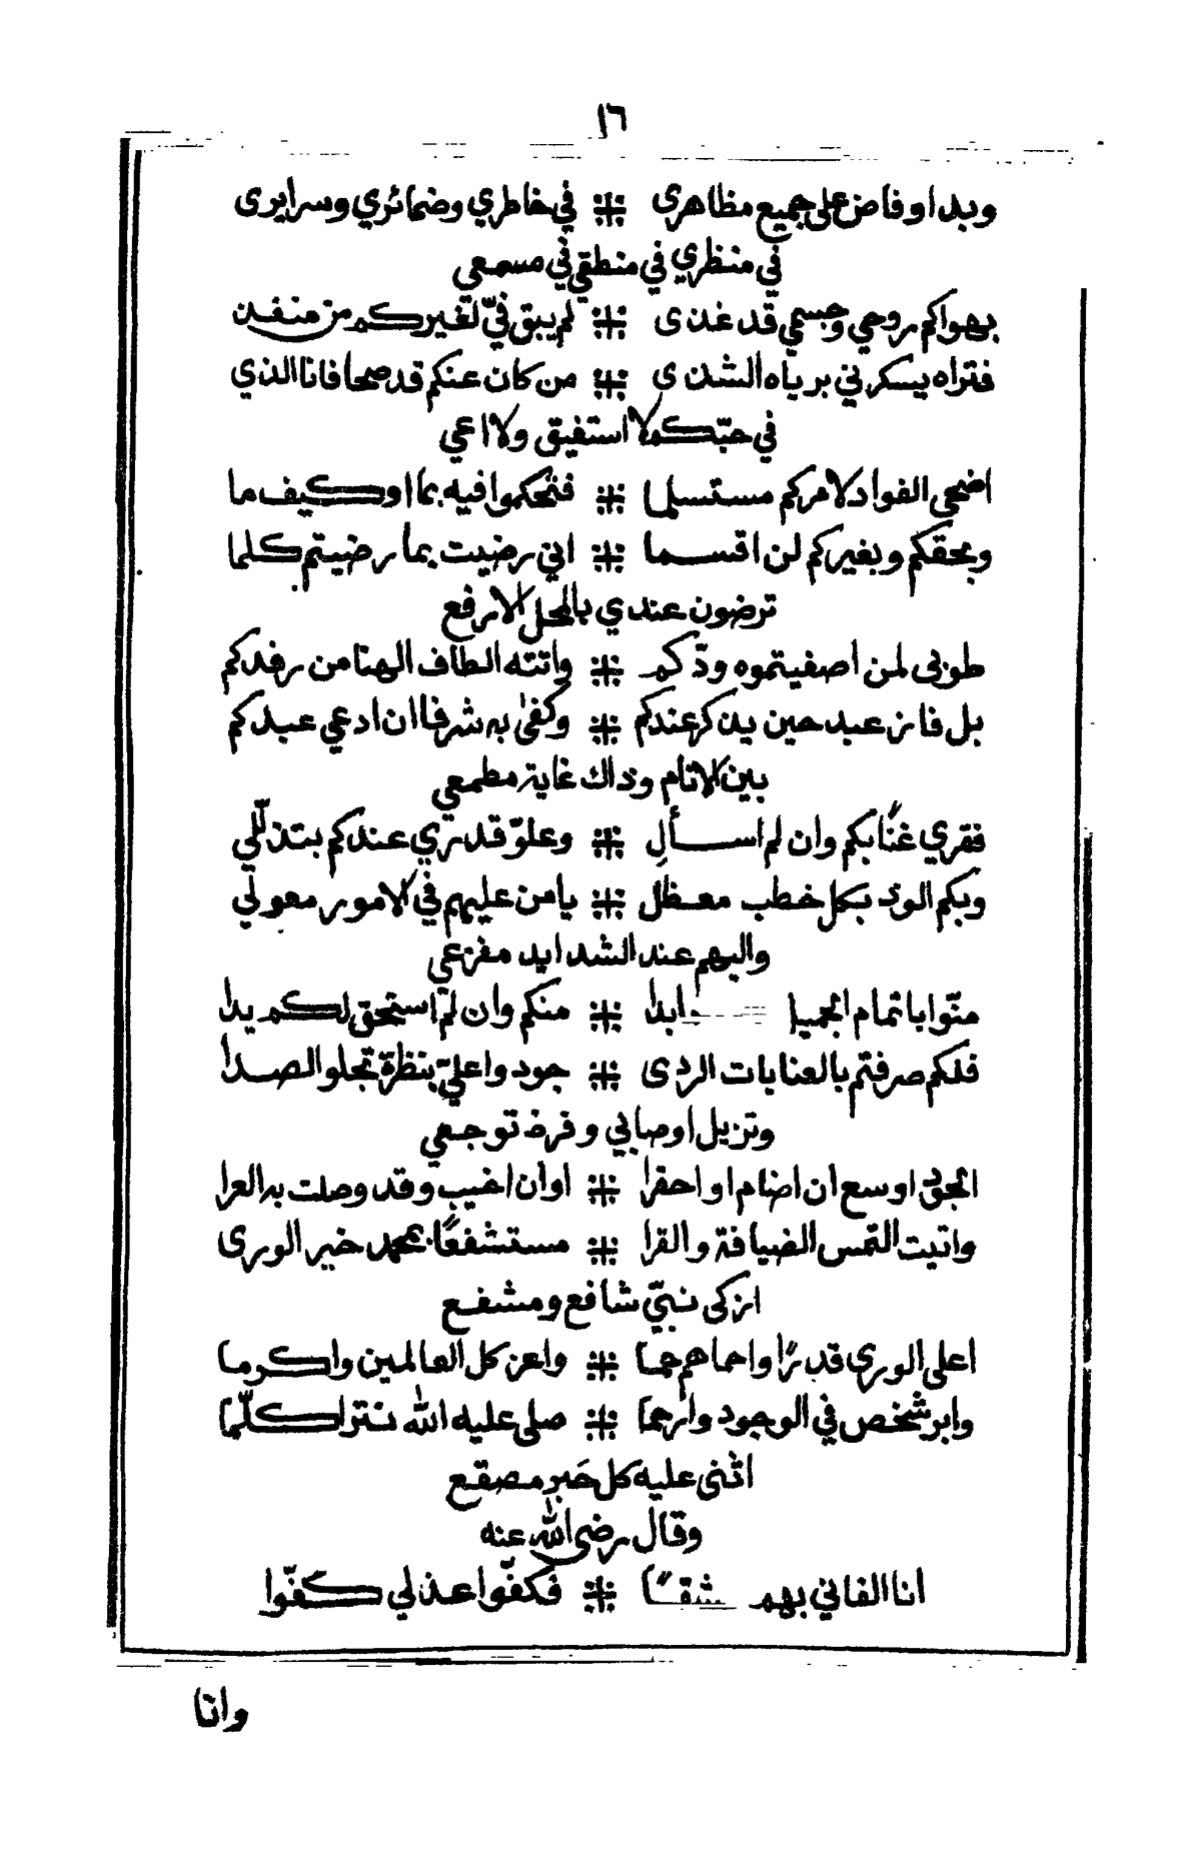 ١٦
وبدا وفاض على جميع مظاهري ⁜ في خاطري وضمائري وسرايري
في منظري في منطقي في مسمعي
بهواكم روحي وجسمي قد غذى ⁜ لم يبق فيّ لغيركم من منفذ
فتراه يسكرني برياه الشذى ⁜ من كان عنكم قد صحا فانا الذي
في حبّكم لا استفيق ولا اعي
اضحى الفواد لامركم مستسلما ⁜ فتحكموا فيه بما او كيف ما
وبحقكم وبغيركم لن اقسما ⁜ اني رضيت بما رضيتم كلما
ترضون عندي بالمحل الارفع
طوبى لمن اصفيتموه ودّكم ⁜ واتته الطاف الهنا من رفدكم
بل فاز عبد حين يذكر عندكم ⁜ وكفى به شرفا ان ادعي عبدكم
بين الانام وذاك غاية مطمعي
فقري غنًا بكم وان لم اسأل ⁜ وعلوّ قدري عندكم بتذلّلي
وبكم الوذ بكل خطب معظل ⁜ يا من عليهم في الامور معولي
واليهم عند الشدايد مفزعي
منّوا باتمام الجميل ابدا ⁜ منكم وان لم استحق لكم يدا
فلكم صرفتم بالعنايات الردى ⁜ جودوا عليّ بنظرة تجلو الصدا
وتزيل اوصابي وفرط توجعي
الجق اوسع ان اضام او احقرا ⁜ او ان اخيب وقد وصلت به العرا
واتيت التمس الضيافة والقرا ⁜ مستشفعًا بمحمد خير الورى
ازكى نبيّ شافع ومشفع
اعلى الورى قدرًا واحماهم حما ⁜ واعز كل العالمين واكرما
وابر شخص في الوجود وارحما ⁜ صلى عليه الله تترا كلّما
اثنى عليه كل حَبر مصقع
وقال رضى الله عنه
انا الفاني بهم عشقًا ⁜ فكفّوا عذلي كفّوا
وانا